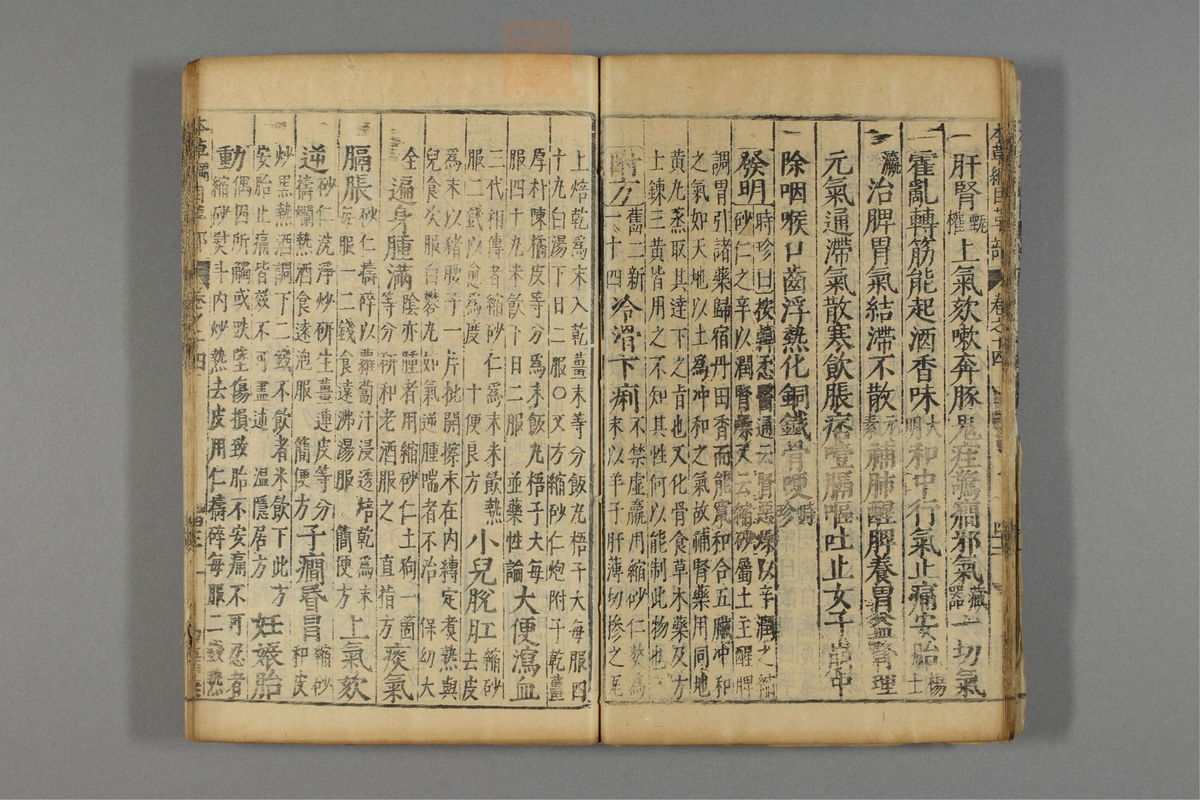 肝腎甄權上氣欬嗽奔豚鬼疰驚癇邪氣藏器一切氣
霍亂轉筋能起酒香味大明和中行氣止痛安胎楊士
瀛治脾胃氣結滯不散元素補肺醒脾養胃益腎理
元氣通滯氣散寒飲脹痞噎膈嘔吐止女子崩中
除咽喉口齒浮熱化銅鐵骨哽時珍
發明時珍曰按韓𢘅醫通云腎惡燥以辛潤之縮
砂仁之辛以潤腎燥又云縮砂屬土主醒脾
調胃引諸藥歸宿丹田香而能竄和合五臟冲和
之氣如天地以土爲冲和之氣故補腎藥用同地
黃丸蒸取其達下之旨也又化骨食草木藥及方
士鍊三黃皆用之不知其性何以能制此物也
附方舊二新一十四冷滑下痢不禁虛羸用縮砂仁熬爲
末以羊子肝薄切摻之瓦
上焙乾爲末入乾薑末等分飯丸梧子大每服四
十丸白湯下日二服〇又方縮砂仁炮附子乾薑
厚朴陳橘皮等分爲末飯丸梧子大每
服四十丸米飲下日二服 並藥性論大便瀉血
三代相傳者縮砂仁爲末米飲熱
服二錢以愈爲度 十便良方小兒脫肛縮砂
去皮
爲末以豬腰子一片批開擦末在內縛定煮熟與
兒食次服白礬丸如氣逆腫喘者不治 保幼大
全遍身腫滿陰亦腫者用縮砂仁土狗一箇
等分研和老酒服之 直指方痰氣
膈脹砂仁擣碎以蘿蔔汁浸透焙乾爲末
每服一二錢食遠沸湯服 簡便方上氣欬
逆砂仁洗淨炒研生薑連皮等分
擣爛熱酒食遠泡服 簡便方子癇昏冒縮砂
和皮
炒黑熱酒調下二錢不飲者米飲下此方
安胎止痛皆效不可盡述 溫隱居方妊娠胎
動偶因所觸或跌墜傷損致胎不安痛不可忍者
縮砂熨斗內炒熱去皮用仁擣碎每服二錢熱
卷之十四